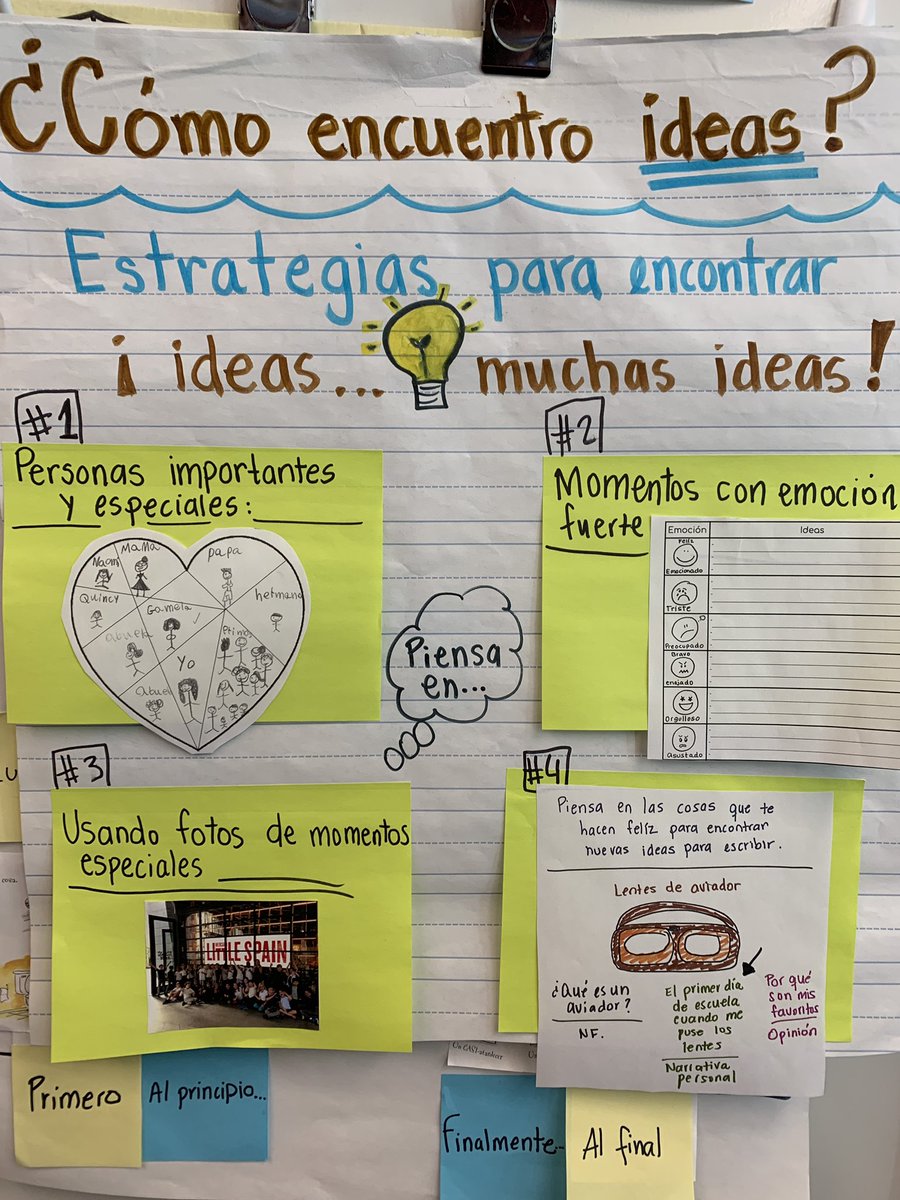 ¿Cómo encuentro ideas?
Estrategias para encontrar
¡ideas... muchas ideas!
#1
Personas importantes
y especiales:
Naomi
Mama
papa
Quincy
Gamela
hermano
abuela
primos
Yo
abuel
Piensa
en...
#2
Momentos con emoción
fuerte
Emoción
Ideas
Feliz
Emocionado
Triste
Preocupado
Bravo
enojado
Orgulloso
Asustado
#3
Usando fotos de momentos
especiales
LITTLE SPAIN
#4
Piensa en las cosas que te
hacen felíz para encontrar
nuevas ideas para escribir.
Lentes de aviador
¿Qué es un
aviador?
NF.
El primer día
de escuela
cuando me
puse los
lentes
Narrativa
personal
Por qué
son mis
favoritos
Opinión
Primero
Al principio...
Finalmente...
Al final